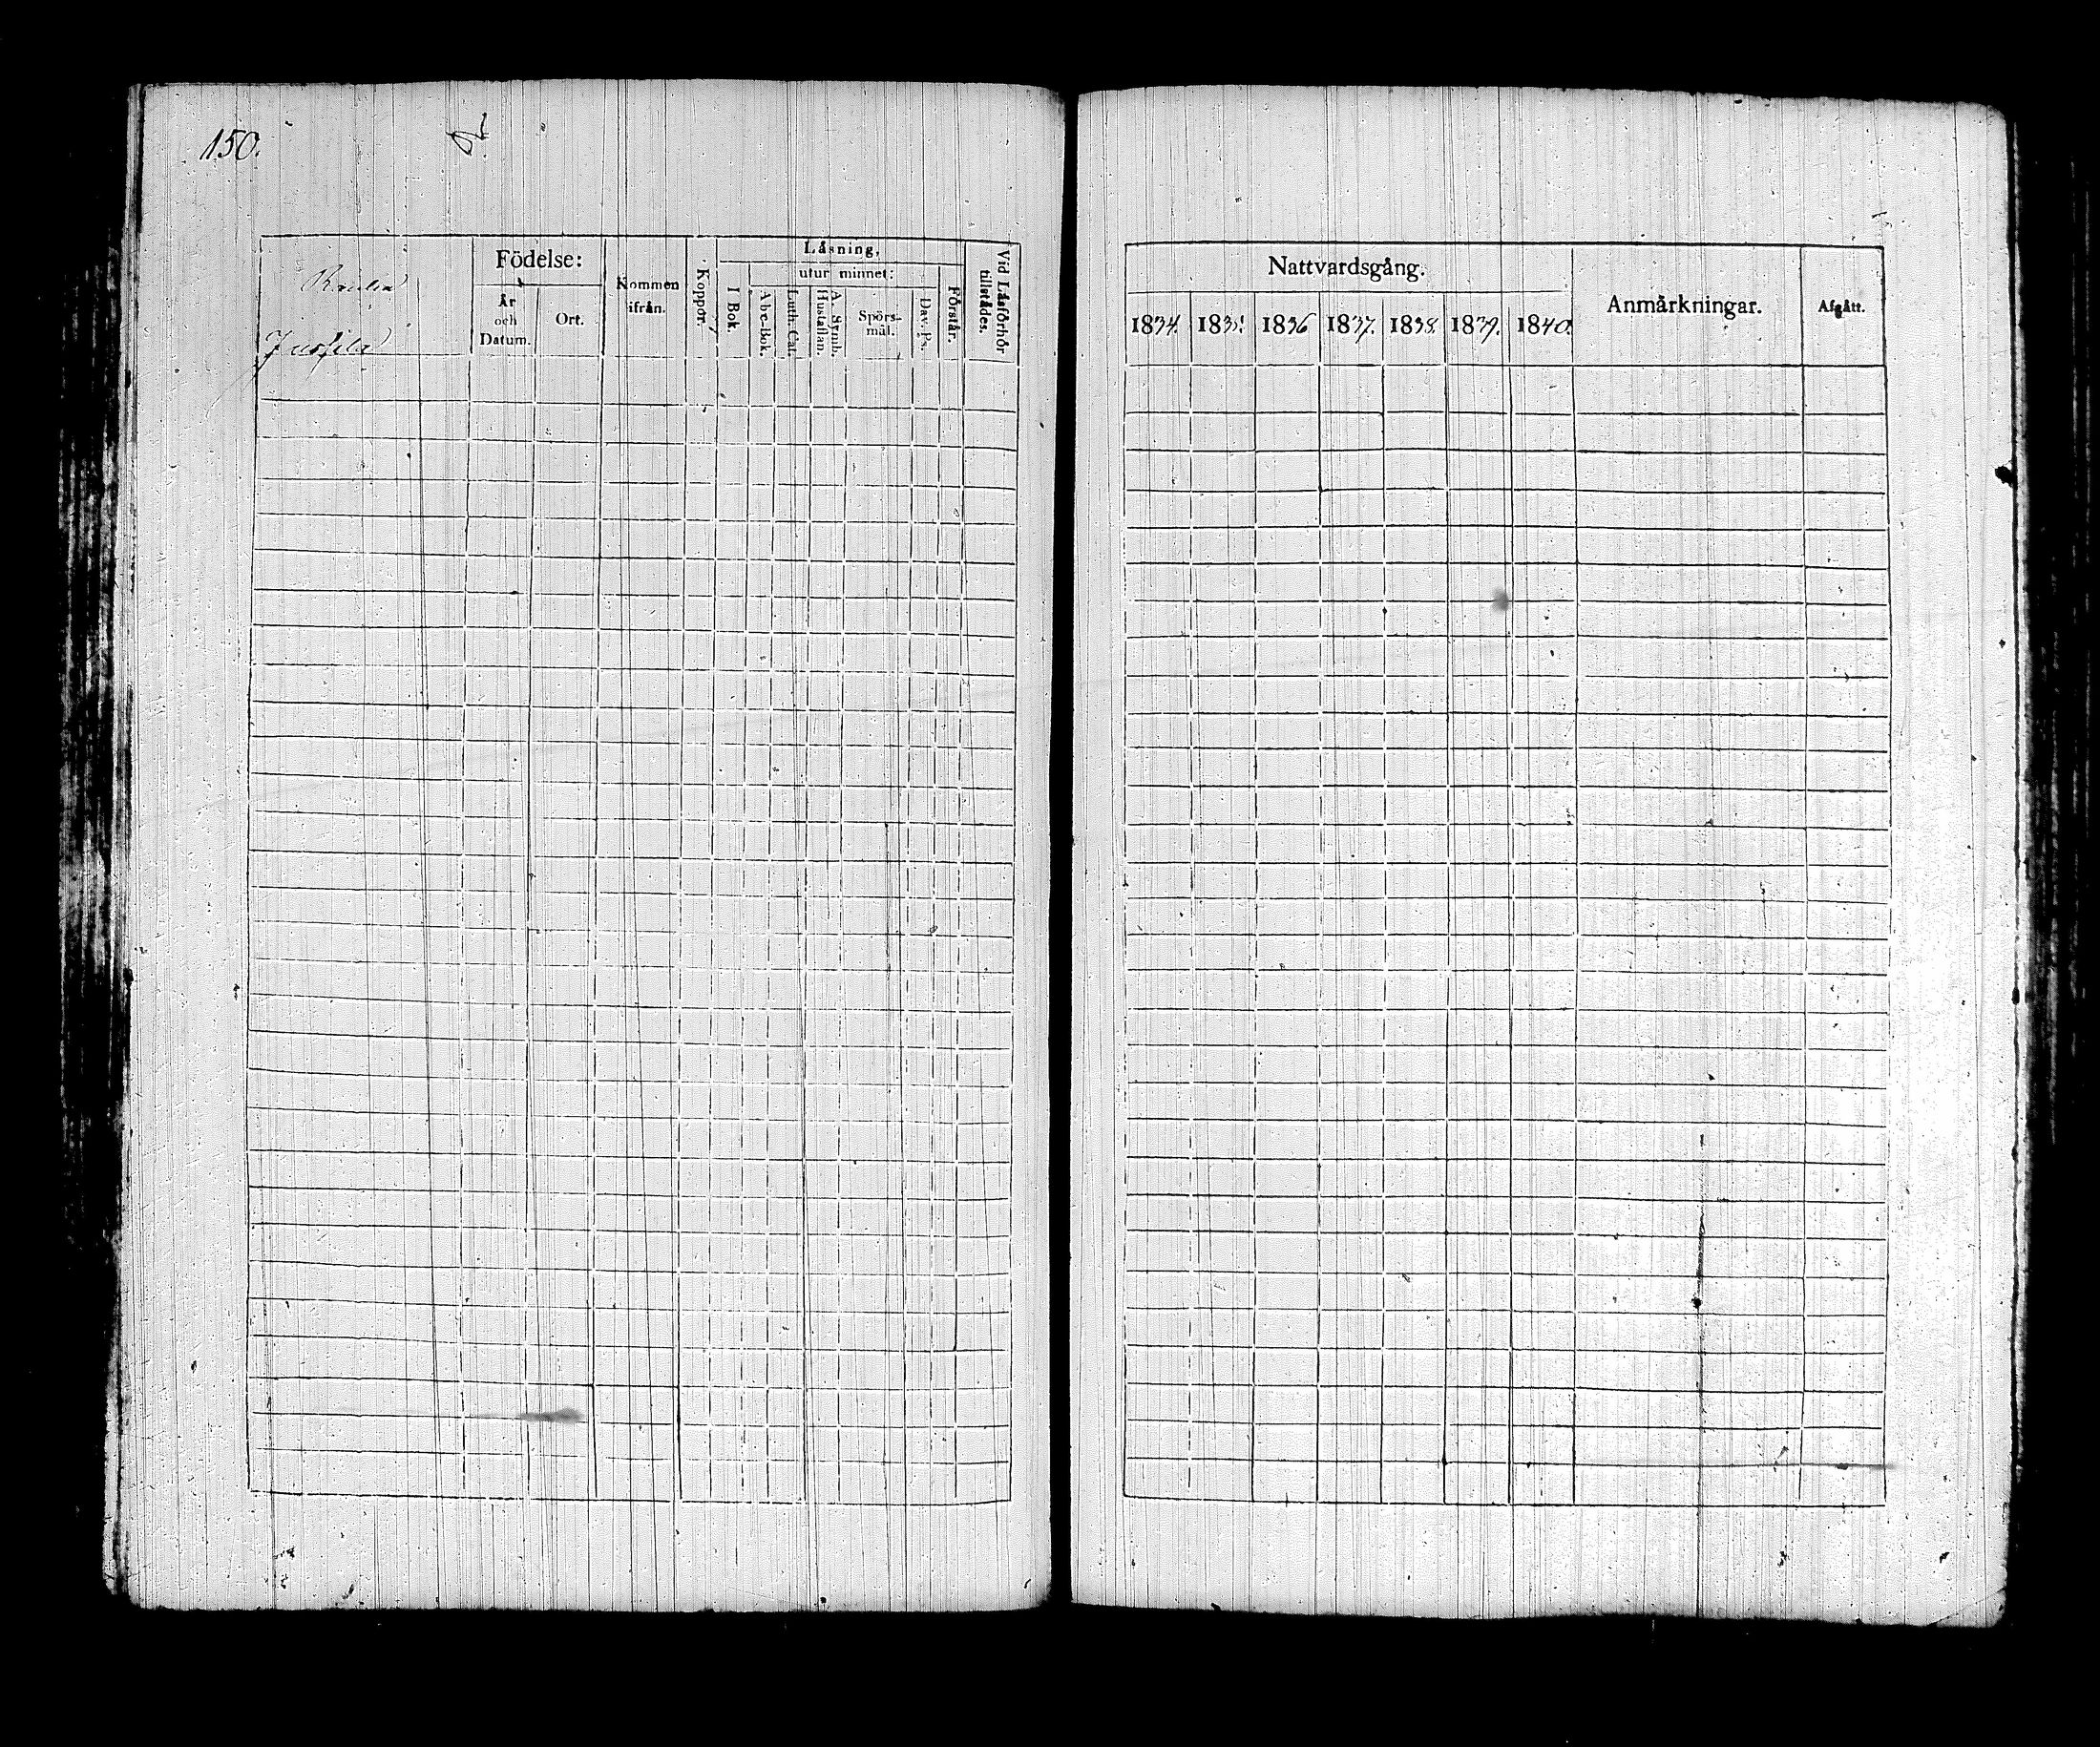 150.
Raula
Jussila
Födelse:
År och Datum.
Ort.
Kommen ifrån.
Koppor.
Läsning,
I Bok.
utur minnet:
Abc-Bok.
Luth. Cat.
A. Symb. Hustaflan.
Spörsmål.
Dav. Ps.
Förstår.
Vid Läsförhör tillstädes.
Nattvardsgång.
1834. 1835. 1836 1837. 1838. 1839. 1840.
Anmärkningar.
Afgått.